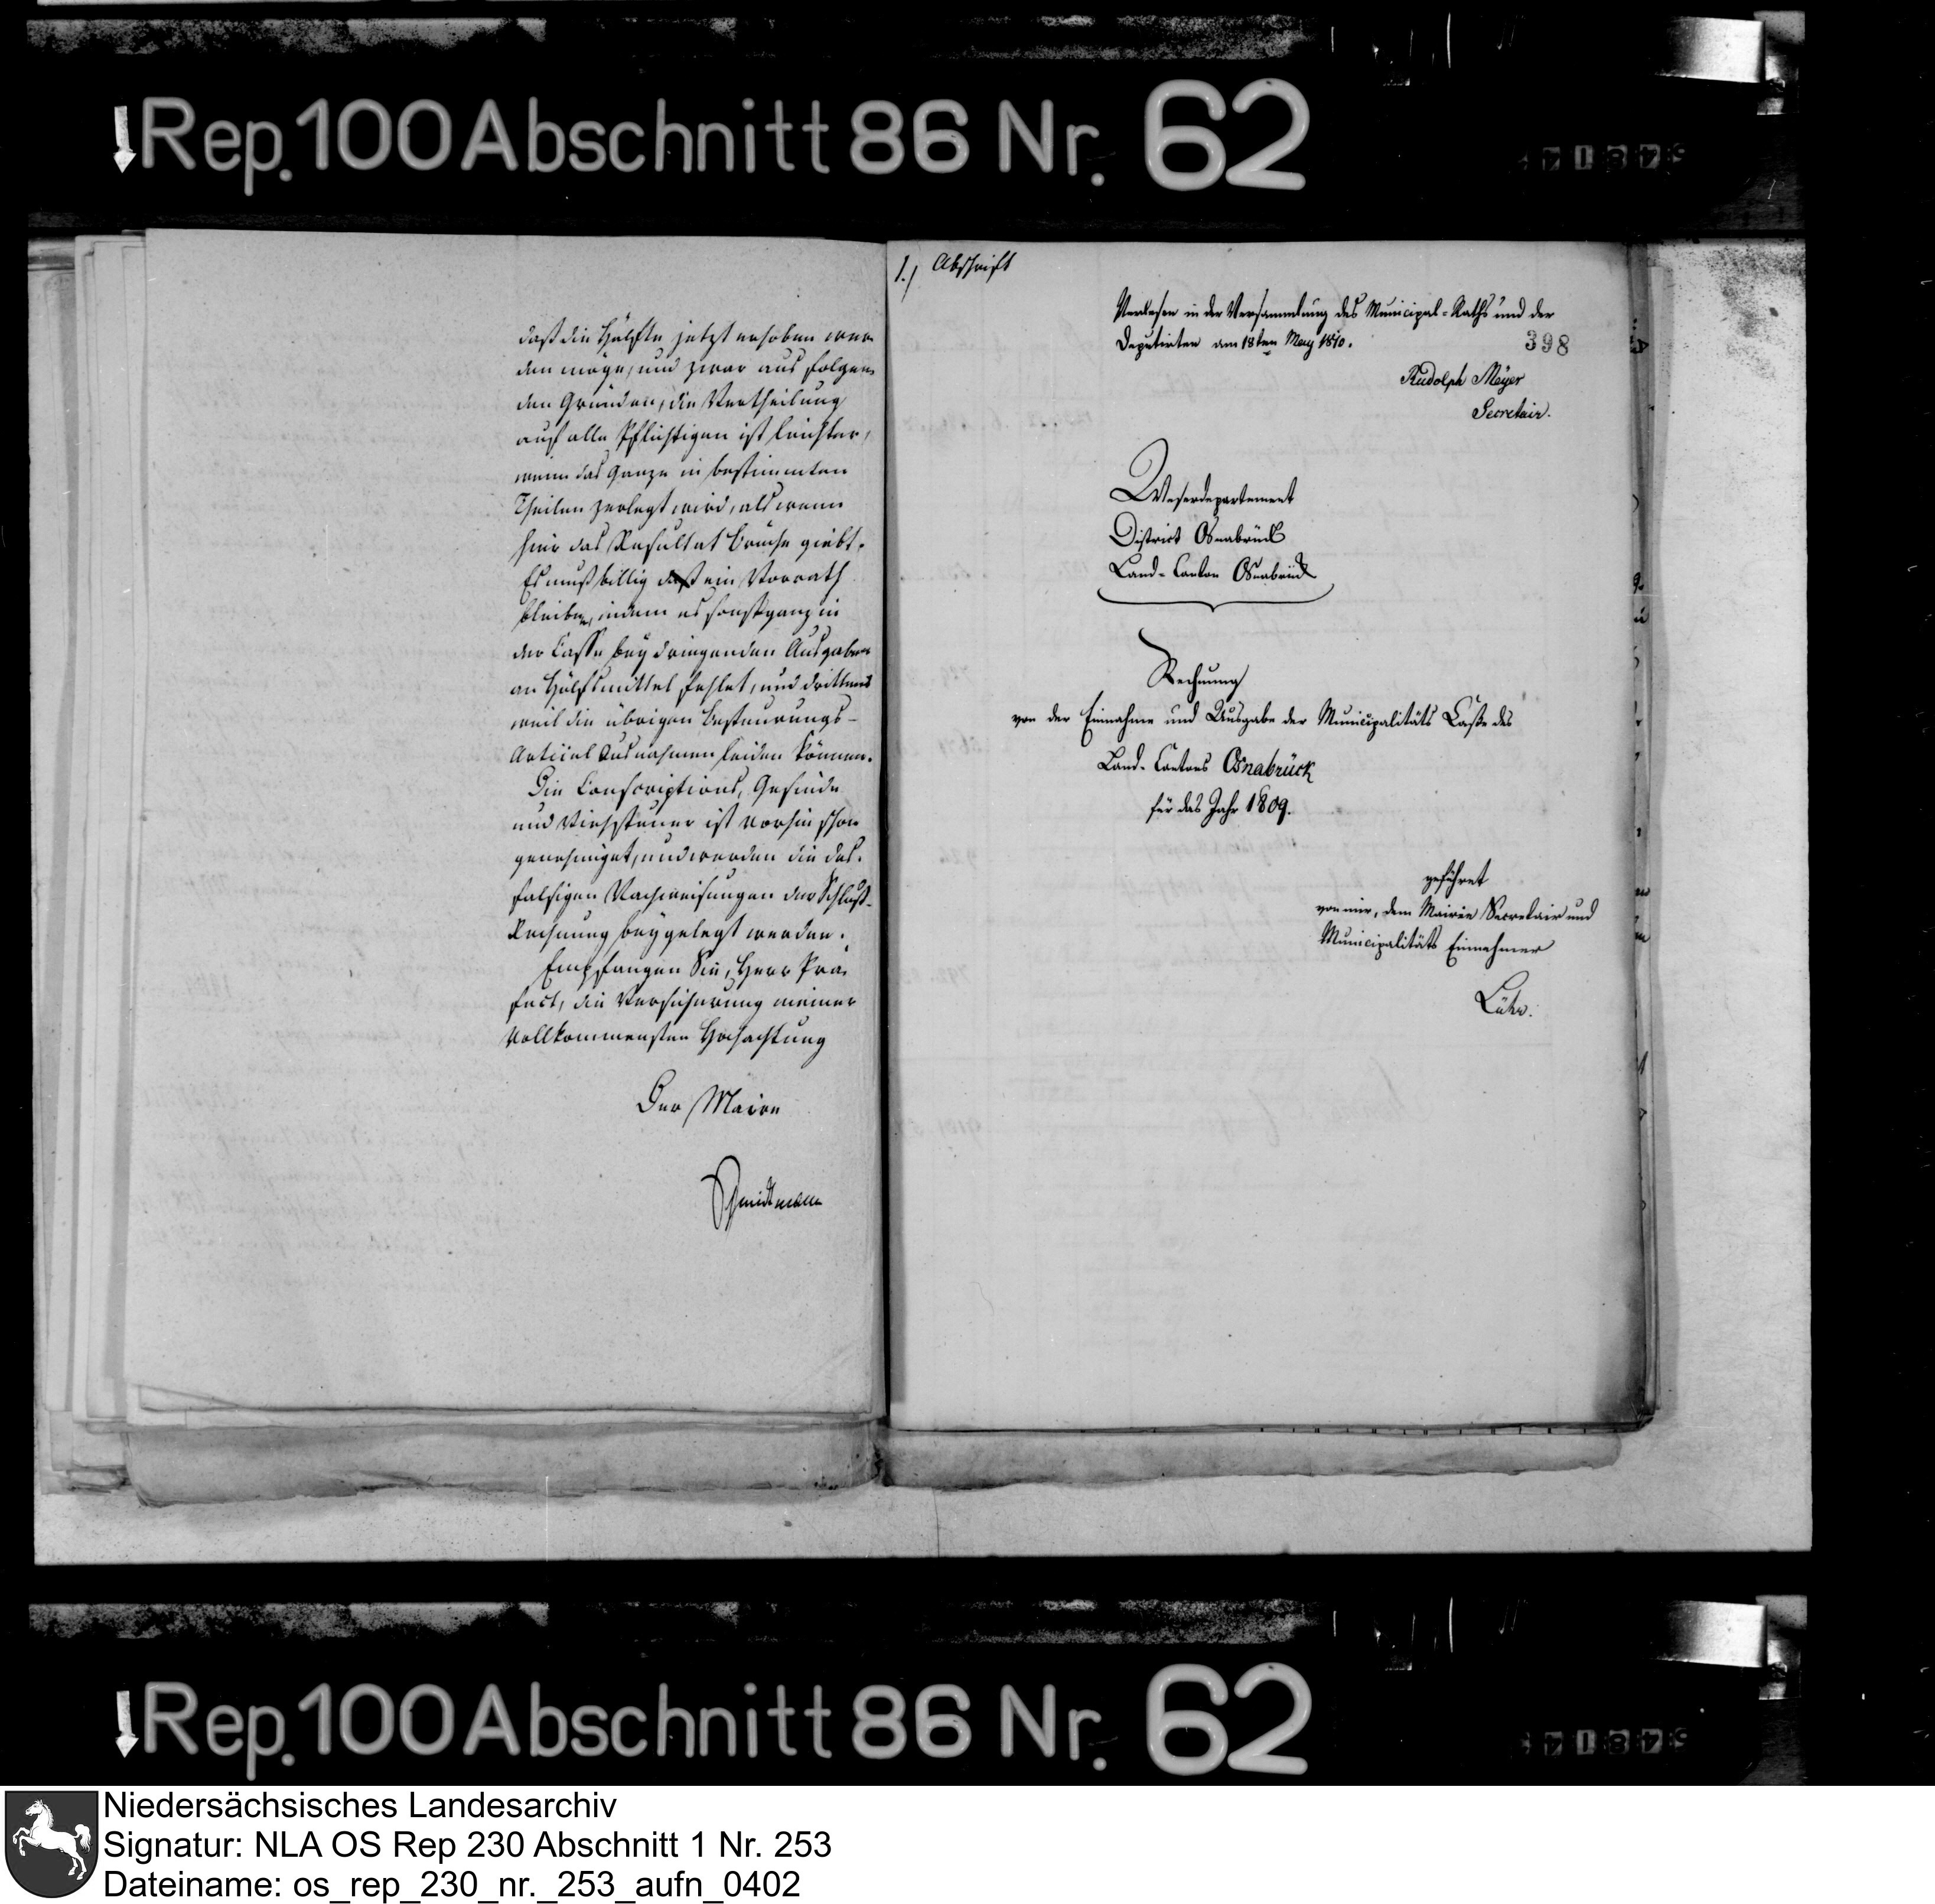 Rep. 100 Abschnitt 86 Nr. 62
daß die Hälfte jetzt erhoben wer¬
den möge, und zwar aus folgen¬
den Gründen, die Vertheilung
auf alle Pflichtigen ist leichter,
wenn das Ganze in bestimmten
Theilen zerlegt wird, als wenn
hier das Resultat Brüche giebt.
Es muß billig daß ein Vorrath
bleiben, indem es sonst ganz in
der Casse bey dringenden Ausgaben
an Hülfsmittel fehlet, und drittens
weil die übrigen Besteurungs-
Articel Ausnahmen leiden können.
Die Conscriptions, Gesinde
und Viehsteuer ist vorhin schon
genehmiget, und werden die des¬
falsigen Nachweisungen der Schluß-
Rechnung beygelegt werden.
Empfangen Sie, Herr Prä¬
fect, die Versicherung meiner
vollkommensten Hochachtung
Der Maire
Schmidtmann
1.) Abschrift
Verlesen in der Versammlung des Municipal-Raths und der
Deputirten am 18ten May 1810.
398
Rudolph Meyer
Secretair.
Weserdepartement
District Osnabrück
Land-Canton Osnabrück
Rechnung
von der Einnahme und Ausgabe der Municipalitäts Caße des
Land-Cantons Osnabrück
für das Jahr 1809.
geführet
von mir, dem Mairie Secretair und
Municipalitäts Einnehmer
Lühr.
Rep. 100 Abschnitt 86 Nr. 62
Niedersächsisches Landesarchiv
Signatur: NLA OS Rep 230 Abschnitt 1 Nr. 253
Dateiname: os_rep_230_nr._253_aufn_0402